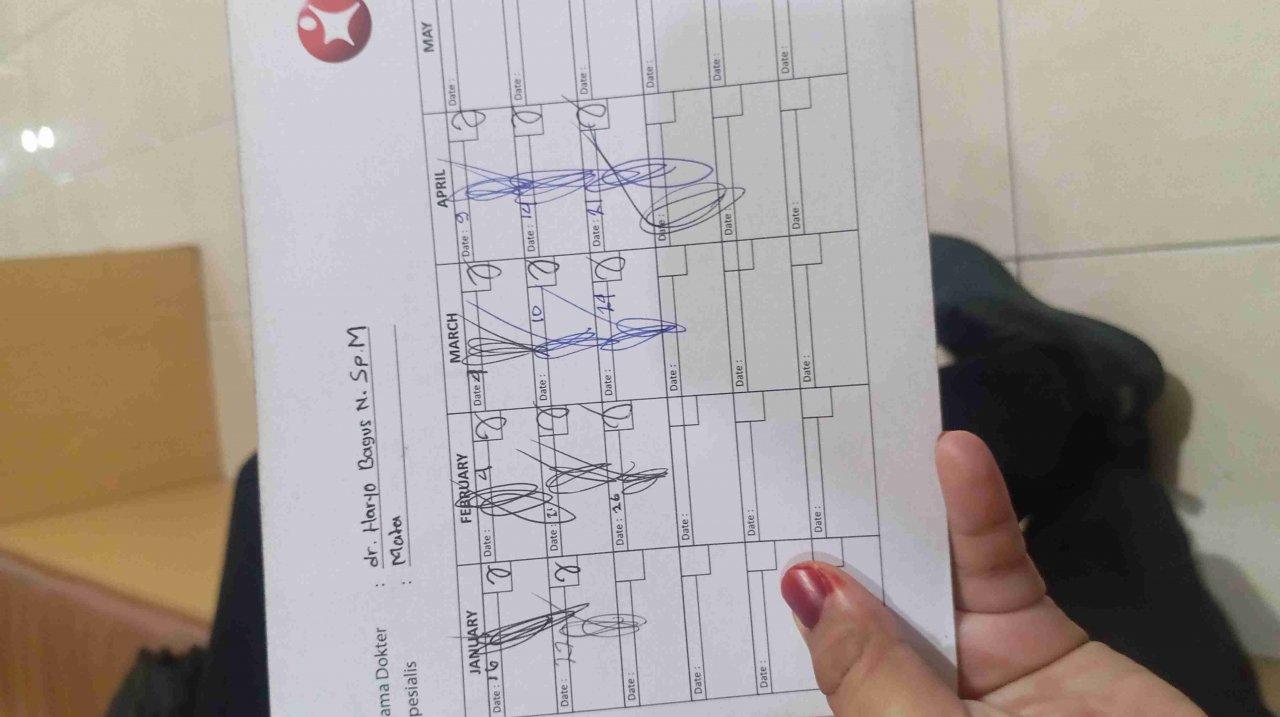 ama Dokter : dr. Haryo Bagus N. Sp.M
pesialis : Mata
JANUARY FEBRUARY MARCH APRIL MAY
Date : 16 2 Date : 4 2 Date 4 2 Date : 9 2 Date :
Date : 2 Date : 2 Date : 10 2 Date : 14 2 Date :
Date : Date : 26 2 Date : 24 2 Date : 21 2 Date :
Date : Date : Date : Date : Date :
Date : Date : Date : Date : Date :
Date : Date : Date : Date :